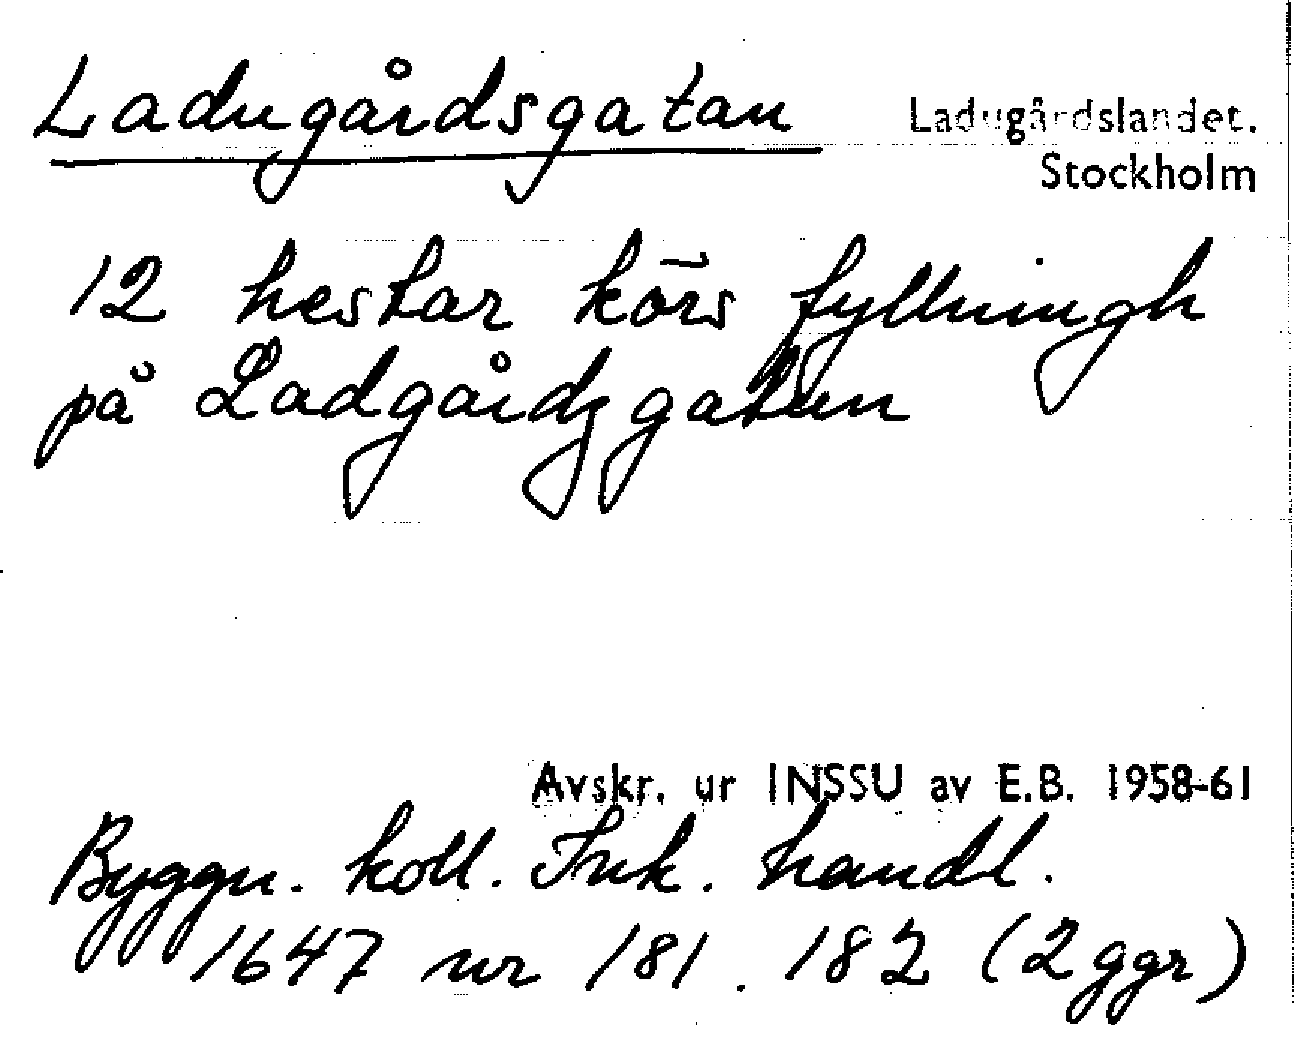 Ladugårdsgatan
Ladugårdslandet.
Stockholm
12 hestar körs fyllningh
på Ladgårdzgatan
Avskr. ur INSSU av E.B. 1958-61
Byggn. koll. Ink. handl.
1647 nr 181. 182 (2 ggr)